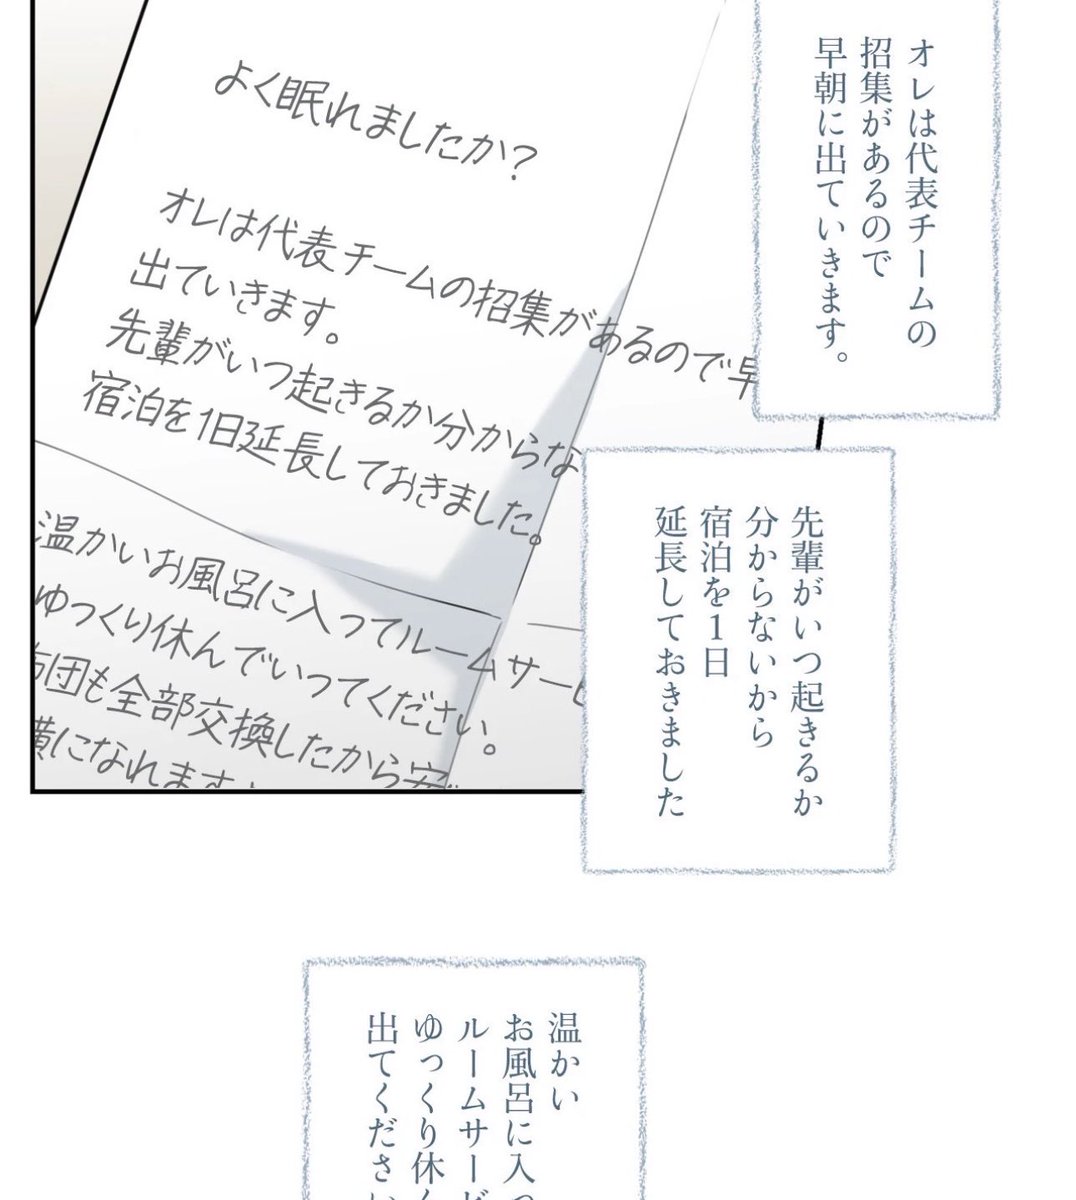 よく眠れましたか?
オレは代表チームの招集があるので早
出ていきます。
先輩がいつ起きるか分からな
宿泊を1日延長しておきました。
温かいお風呂に入ってルームサービ
ゆっくり休んでいってください。
団も全部交換したから安
横になれます
オレは代表チームの
招集があるので
早朝に出ていきます。
先輩がいつ起きるか
分からないから
宿泊を1日
延長しておきました
温かい
お風呂に入っ
ルームサービ
ゆっくり休ん
出てください